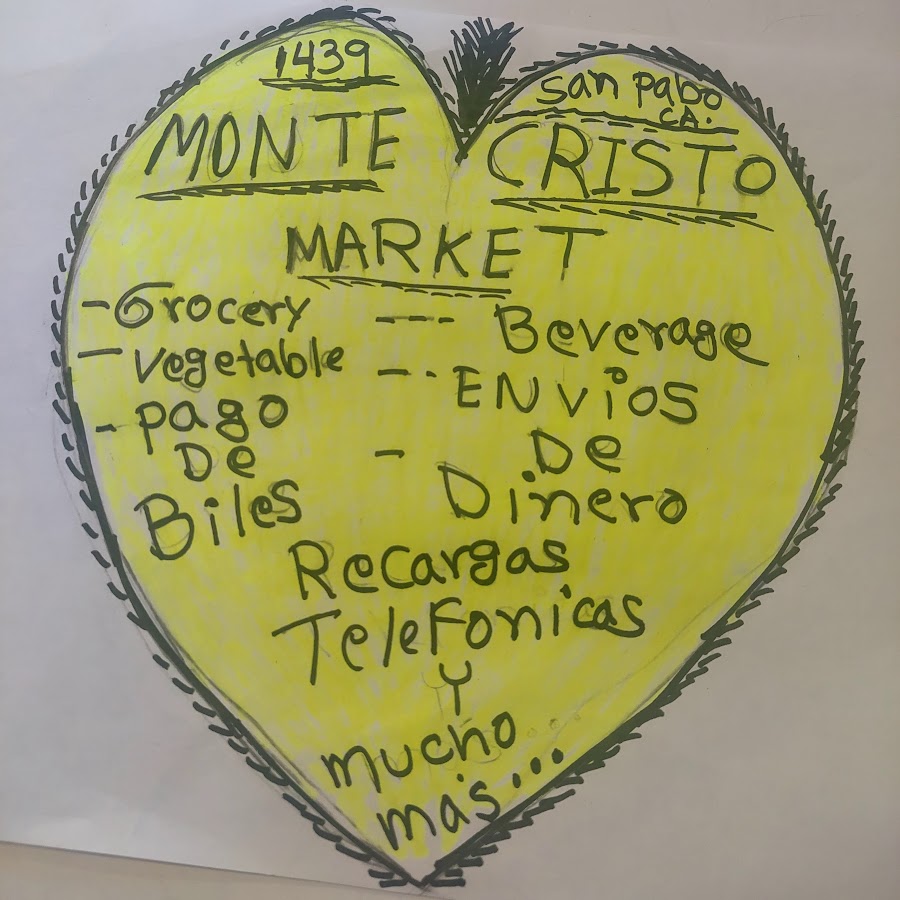 1439
San Pablo
CA.
MONTE CRISTO
MARKET
- Grocery
- Vegetable
- Pago
De
Biles
--- Beverage
-- ENViOS
- De
Dinero
Recargas
TeleFonicas
Y
mucho
más...